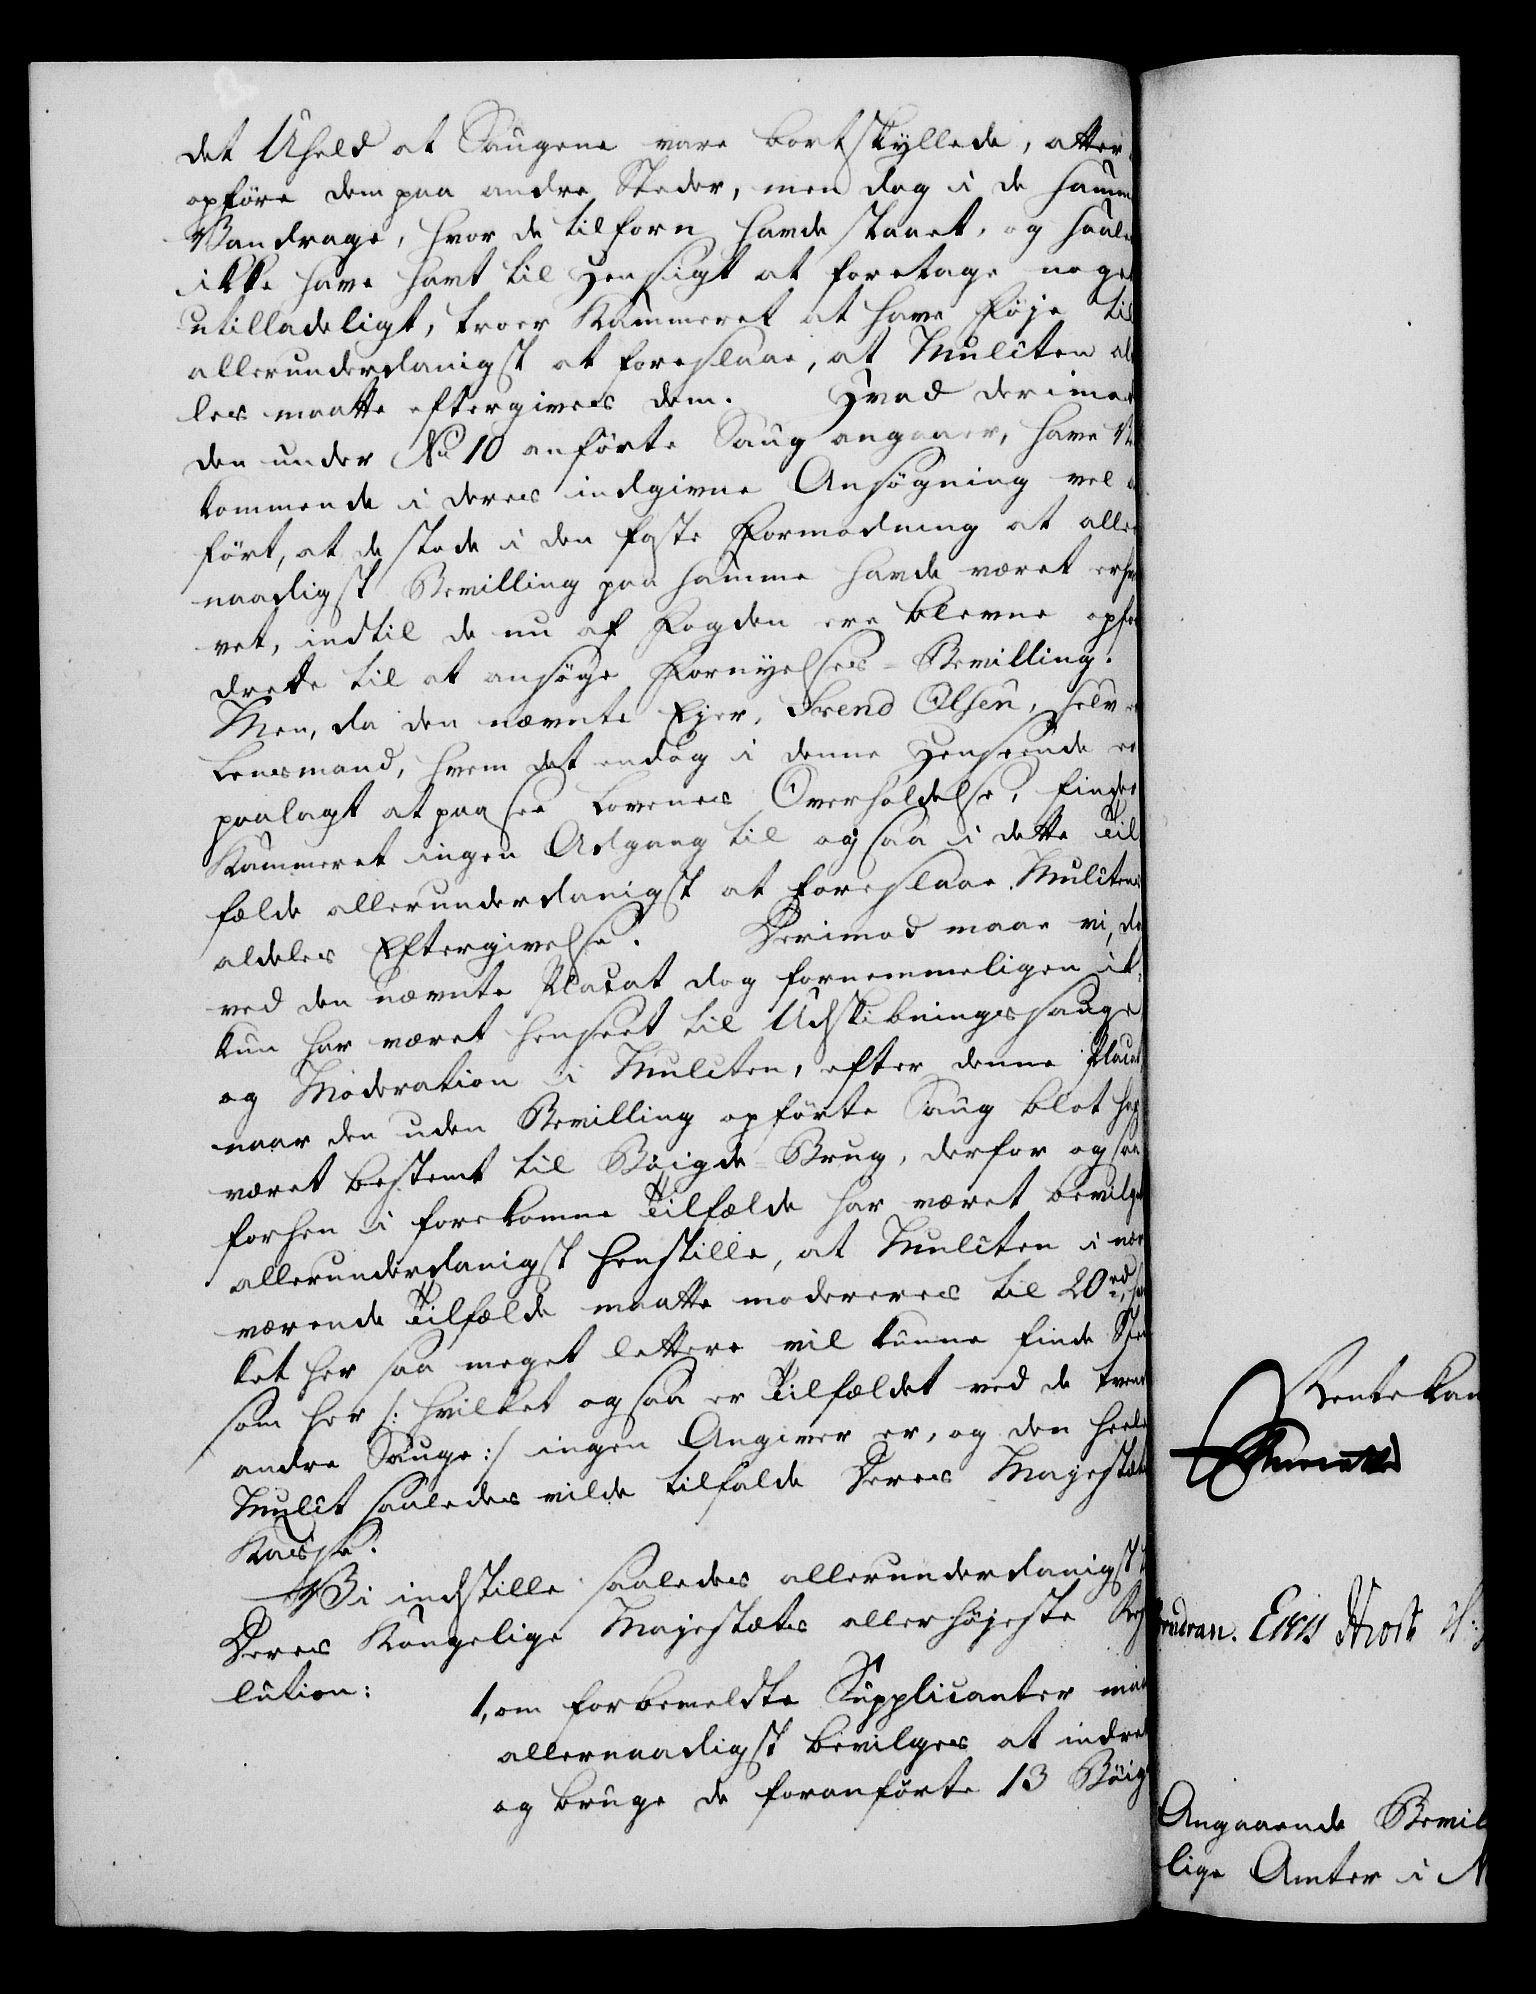 det Uheld at Saugene vare bortskyllede, atter
opföre dem paa andre Steder, men dog i de samme
Vandrage, hvor de tilforn havde staaet, og saale
ikke have havt til Hensigt at foretage noget
utilladeligt, troer Kammeret at have Föje til
allerunderdanigst at foreslaae, at Mulcten al
les maatte eftergives dem. Hvad derimod
den under No 10 anförte Saug angaaer, have Ved
kommende i deres indgivne Ansögning vel an
fört, at de stode i den faste Formodning at aller
naadigst Bevilling paa samme havde været erhver
vet, indtil de nu af Fogden ere blevne opfor
drede til at ansöge Fornyelses-Bevilling.
Men, da den nævnte Ejer, Svend Olsen, selv er
Lensmand, hvem det endog i denne Henseende er
paalagt at paasee Lovenes Overholdelse, finder
Kammeret ingen Adgang til ogsaa i dette Til
fælde allerunderdanigst at foreslaae Mulctens
aldeles Eftergivelse. Derimod maae vi, da
ved den nævnte Placat dog fornemmeligen ik-
kun har været henseet til Udskibningssauge
og Moderation i Mulcten, efter denne Placat
naar den uden Bevilling opförte Saug blot har
været bestemt til Böigde-Brug, derfor ogsaa
forhen i forekomne Tilfælde har været bevilget
allerunderdanigst henstille, at Mulcten i nær
værende Tilfælde maatte modereres til 20 rd,
ket her saa meget lettere vil kunne finde Sted
som her /: hvilket ogsaa er Tilfældet ved de tvende
andre Sauge :/ ingen Angiver er, og den heele
Mulct saaledes vilde tilfalde Deres Majestæts
Kasse.
Vi indstille saaledes allerunderdanigst t
Deres Kongelige Majestæts allerhöjeste Res
lution:
1, om forbemeldte Supplicanter maa
allernaadigst bevilges at indret
og bruge de foranförte 13 Böig
Rentekam
Angaaende Bevil
lige Amter i N